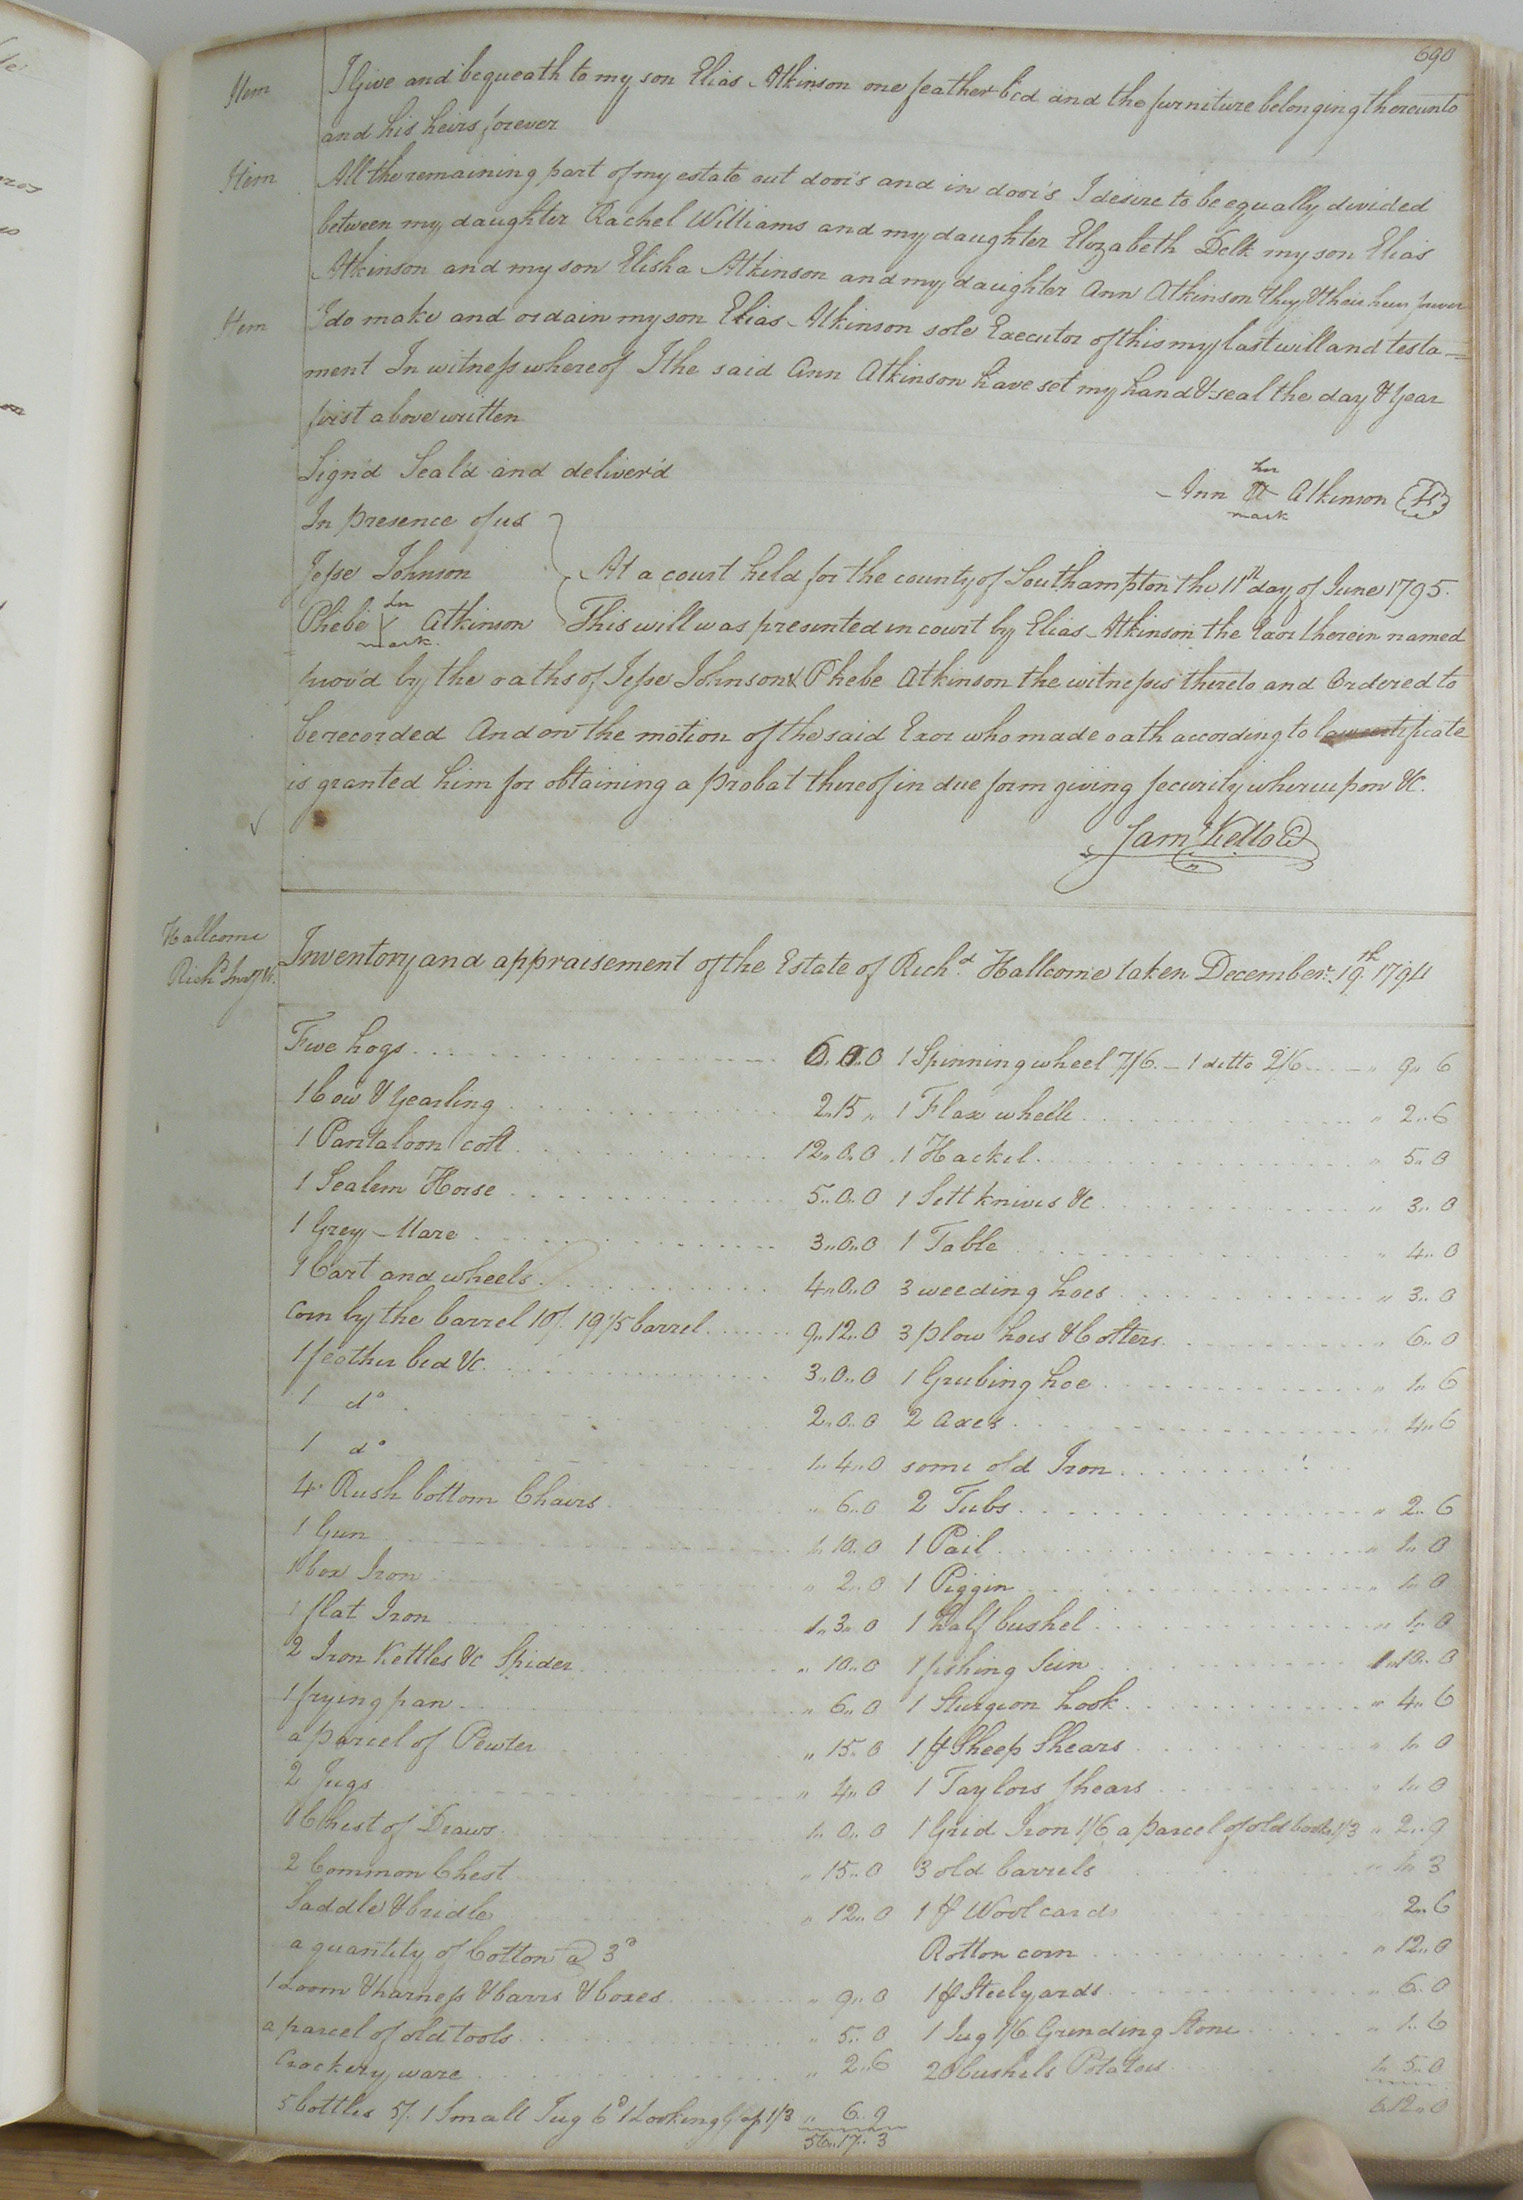 690
Item I Give and bequeath to my son Elias Atkinson one feather bed and the furniture belonging thereunto
and his heirs forever
Item All the remaining part of my estate out door's and in door's I desire to be equally divided
between my daughter Rachel Williams and my daughter Elozabeth Delk my son Elias
Atkinson and my son Elisha Atkinson and my daughter Ann Atkinson they & their heirs forever
Item I do make and ordain my son Elias Atkinson sole Executor of this my last will and testa-
ment In witness whereof I the said Ann Atkinson have set my hand & seal the day & Year
first above written
Sign'd Seal'd and deliver'd
her
Ann A Atkinson LS
mark
In presence of us
Jesse Johnson At a court held for the county of Southampton the 11th day of June 1795.
her
Phebe Atkinson This will was presented in court by Elias Atkinson the Exor therein named
mark.
prov'd by the oaths of Jesse Johnson & Phebe Atkinson the witnesses thereto and Ordered to
be recorded And on the motion of the said Exor who made oath according to law certificate
is granted him for obtaining a probat thereof in due form giving security whereupon &c.
Sam Kello C
Hallcome
Richd Invy &c.
Inventory and appraisement of the Estate of Richd Hallcome taken December 19th 1794
Five hogs 6.0.0 1 Spinning wheel 7/6 - 1 ditto 2/6 " 9" 6
1 Cow & Yearling 2.15 " 1 Flax wheele " 2..6
1 Pantaloon colt 12.0.0 1 Hackel " 5.0
1 Sealem Horse 5..0..0 1 Sett knives &c " 3..0
1 Grey Mare 3..0..0 1 Table " 4..0
1 Cart and wheels 4..0..0 3 weeding hoes " 3..0
Corn by the barrel 10/. 19 1/5 barrel 9..12..0 3 plow hoes & Colters " 6..0
1 feather bed &c. 3..0..0 1 Grubing hoe " 1..6
1 do 2..0..0 2 axes " 4..6
1 do 1..4..0 some old Iron
4 Rush bottom Chairs " 6..0 2 Tubs " 2..6
1 Gun 1.10..0 1 Pail " 1..0
1 box Iron " 2..0 1 Piggin " 1..0
1 flat Iron 1..3..0 1 half bushel " 1..0
2 Iron Kettles &c Spider " 10..0 1 fishing Sein 1..10..0
1 frying pan " 6..0 1 Sturgeon hook " 4..6
a parcel of Pewter " 15..0 1 pr Sheep Shears " 1..0
2 Jugs " 4..0 1 Taylors shears " 1..0
1 Chest of Draws 1..0..0 1 Grid Iron 1/6 a parcel of old books 1/3 " 2..9
2 Common Chest " 15..0 3 old barrels " 1..3
Saddle & bridle " 12..0 1 pr Wool cards 2..6
a quantity of Cotton @ 3d Rotton corn " 12..0
1 Loom & harness & barrs & boxes " 9..0 1 pr Steelyards " 6.0
a parcel of old tools " 5..0 1 Jug 1/6 Grinding Stone " 1..6
Crockery ware " 2..6 20 bushels Potatoes 1..5..0
5 bottles 5/. 1 Small Jug 6d 1 Looking 1/3 " 6..9 6.12..0
56..17..3